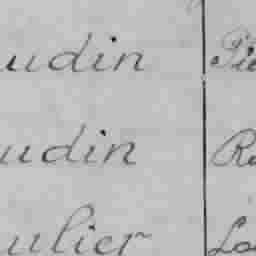 udin Pie
udin Re
ulier Lo